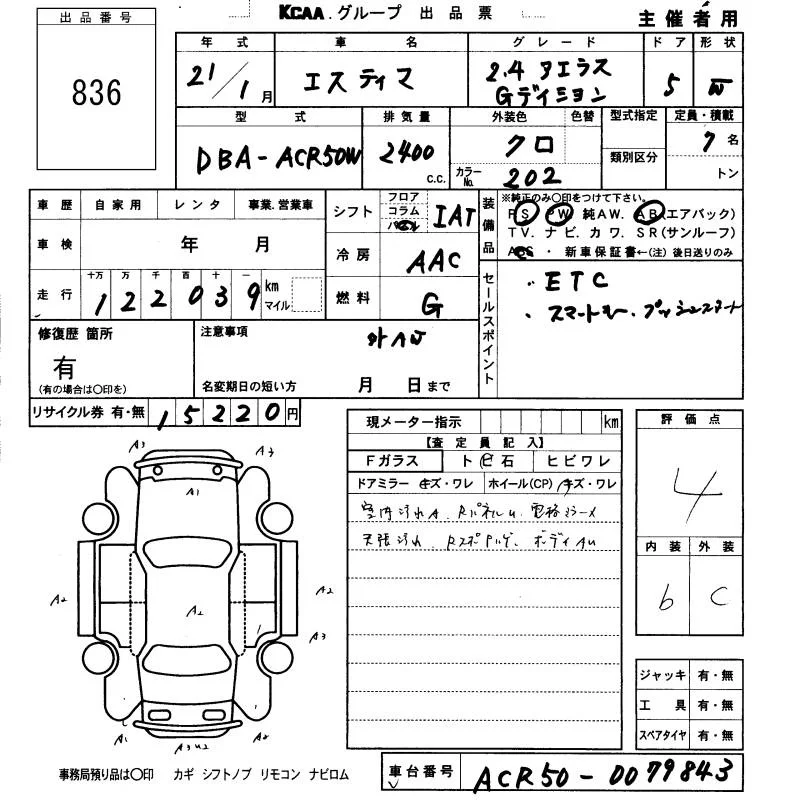 KCAA.グループ 出品票
主催者用
出品番号
836
年式 車名 グレード ドア 形状
21/1月 エスティマ 2.4アエラス 5 W
Gディミョン
型式 排気量 外装色 色替 型式指定 定員・積載
DBA-ACR50W 2400 c.c. クロ 類別区分 7名
カラーNo. 202 トン
車歴 自家用 レンタ 事業.営業車
車検 年 月
走行 十万 万 千 百 十 一
122039 km マイル
シフト フロア コラム IAT
冷房 AAC
燃料 G
装備品 ※純正のみ〇印をつけて下さい。
PS PW 純AW. AB(エアバック)
TV. ナビ. カワ. SR(サンルーフ)
・新車保証書←(注)後日送りのみ
セールスポイント
・ETC
・スマートキー.プッシュスタート
修復歴 箇所
有
(有の場合は〇印を)
注意事項 外AW
名変期日の短い方 月 日まで
リサイクル券 有・無 15220円
現メーター指示 km
【査定員記入】
Fガラス ト ビ石 ヒビワレ
ドアミラー キズ・ワレ ホイール(CP) キズ・ワレ
室内汚れA. RパネルU. 電格ミラー×
天張汚れ. RスポPハゲ. ボディAU
評価点
4
内装 外装
b C
A3
A3
A1
A2
A2
A2
A3
A1
A3U2
A2
ジャッキ 有・無
工具 有・無
スペアタイヤ 有・無
事務局預り品は〇印 カギ シフトノブ リモコン ナビロム
車台番号 ACR50-0079843